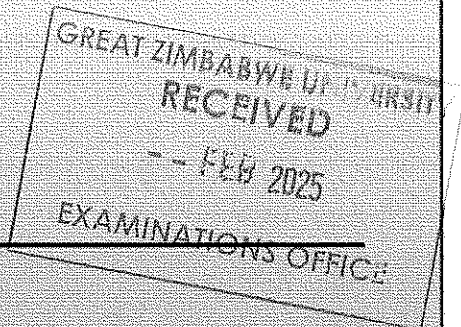 GREAT ZIMBABWE
RECEIVED
-- FEB 2025
EXAMINATIONS OFFICE